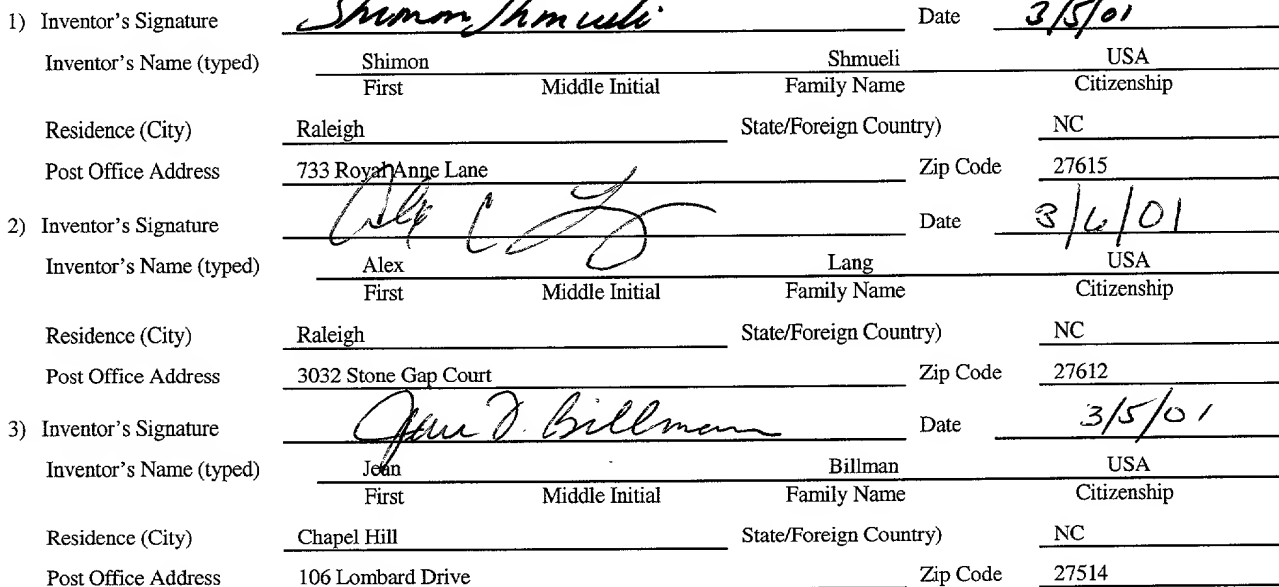 1) Inventor's Signature Shimon Shmueli Date 3/5/01
Inventor's Name (typed) Shimon Shmueli USA
First Middle Initial Family Name Citizenship
Residence (City) Raleigh State/Foreign Country) NC
Post Office Address 733 Royal Anne Lane Zip Code 27615
2) Inventor's Signature Alex C Date 3/6/01
Inventor's Name (typed) Alex Lang USA
First Middle Initial Family Name Citizenship
Residence (City) Raleigh State/Foreign Country) NC
Post Office Address 3032 Stone Gap Court Zip Code 27612
3) Inventor's Signature Jean D. Billman Date 3/5/01
Inventor's Name (typed) Jean Billman USA
First Middle Initial Family Name Citizenship
Residence (City) Chapel Hill State/Foreign Country) NC
Post Office Address 106 Lombard Drive Zip Code 27514